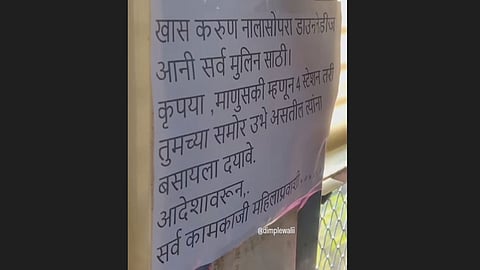 खास करुण नालासोपरा डाउनरेडीज
आनी सर्व मुलिन साठी।
कृपया ,माणुसकी म्हणून 4 स्टेशन तरी
तुमच्या समोर उभे असतील त्यांना
बसायला दयावे.
आदेशावरून,.
सर्व कामकाजी महिलाप्रवाशी....
@dimplewalii